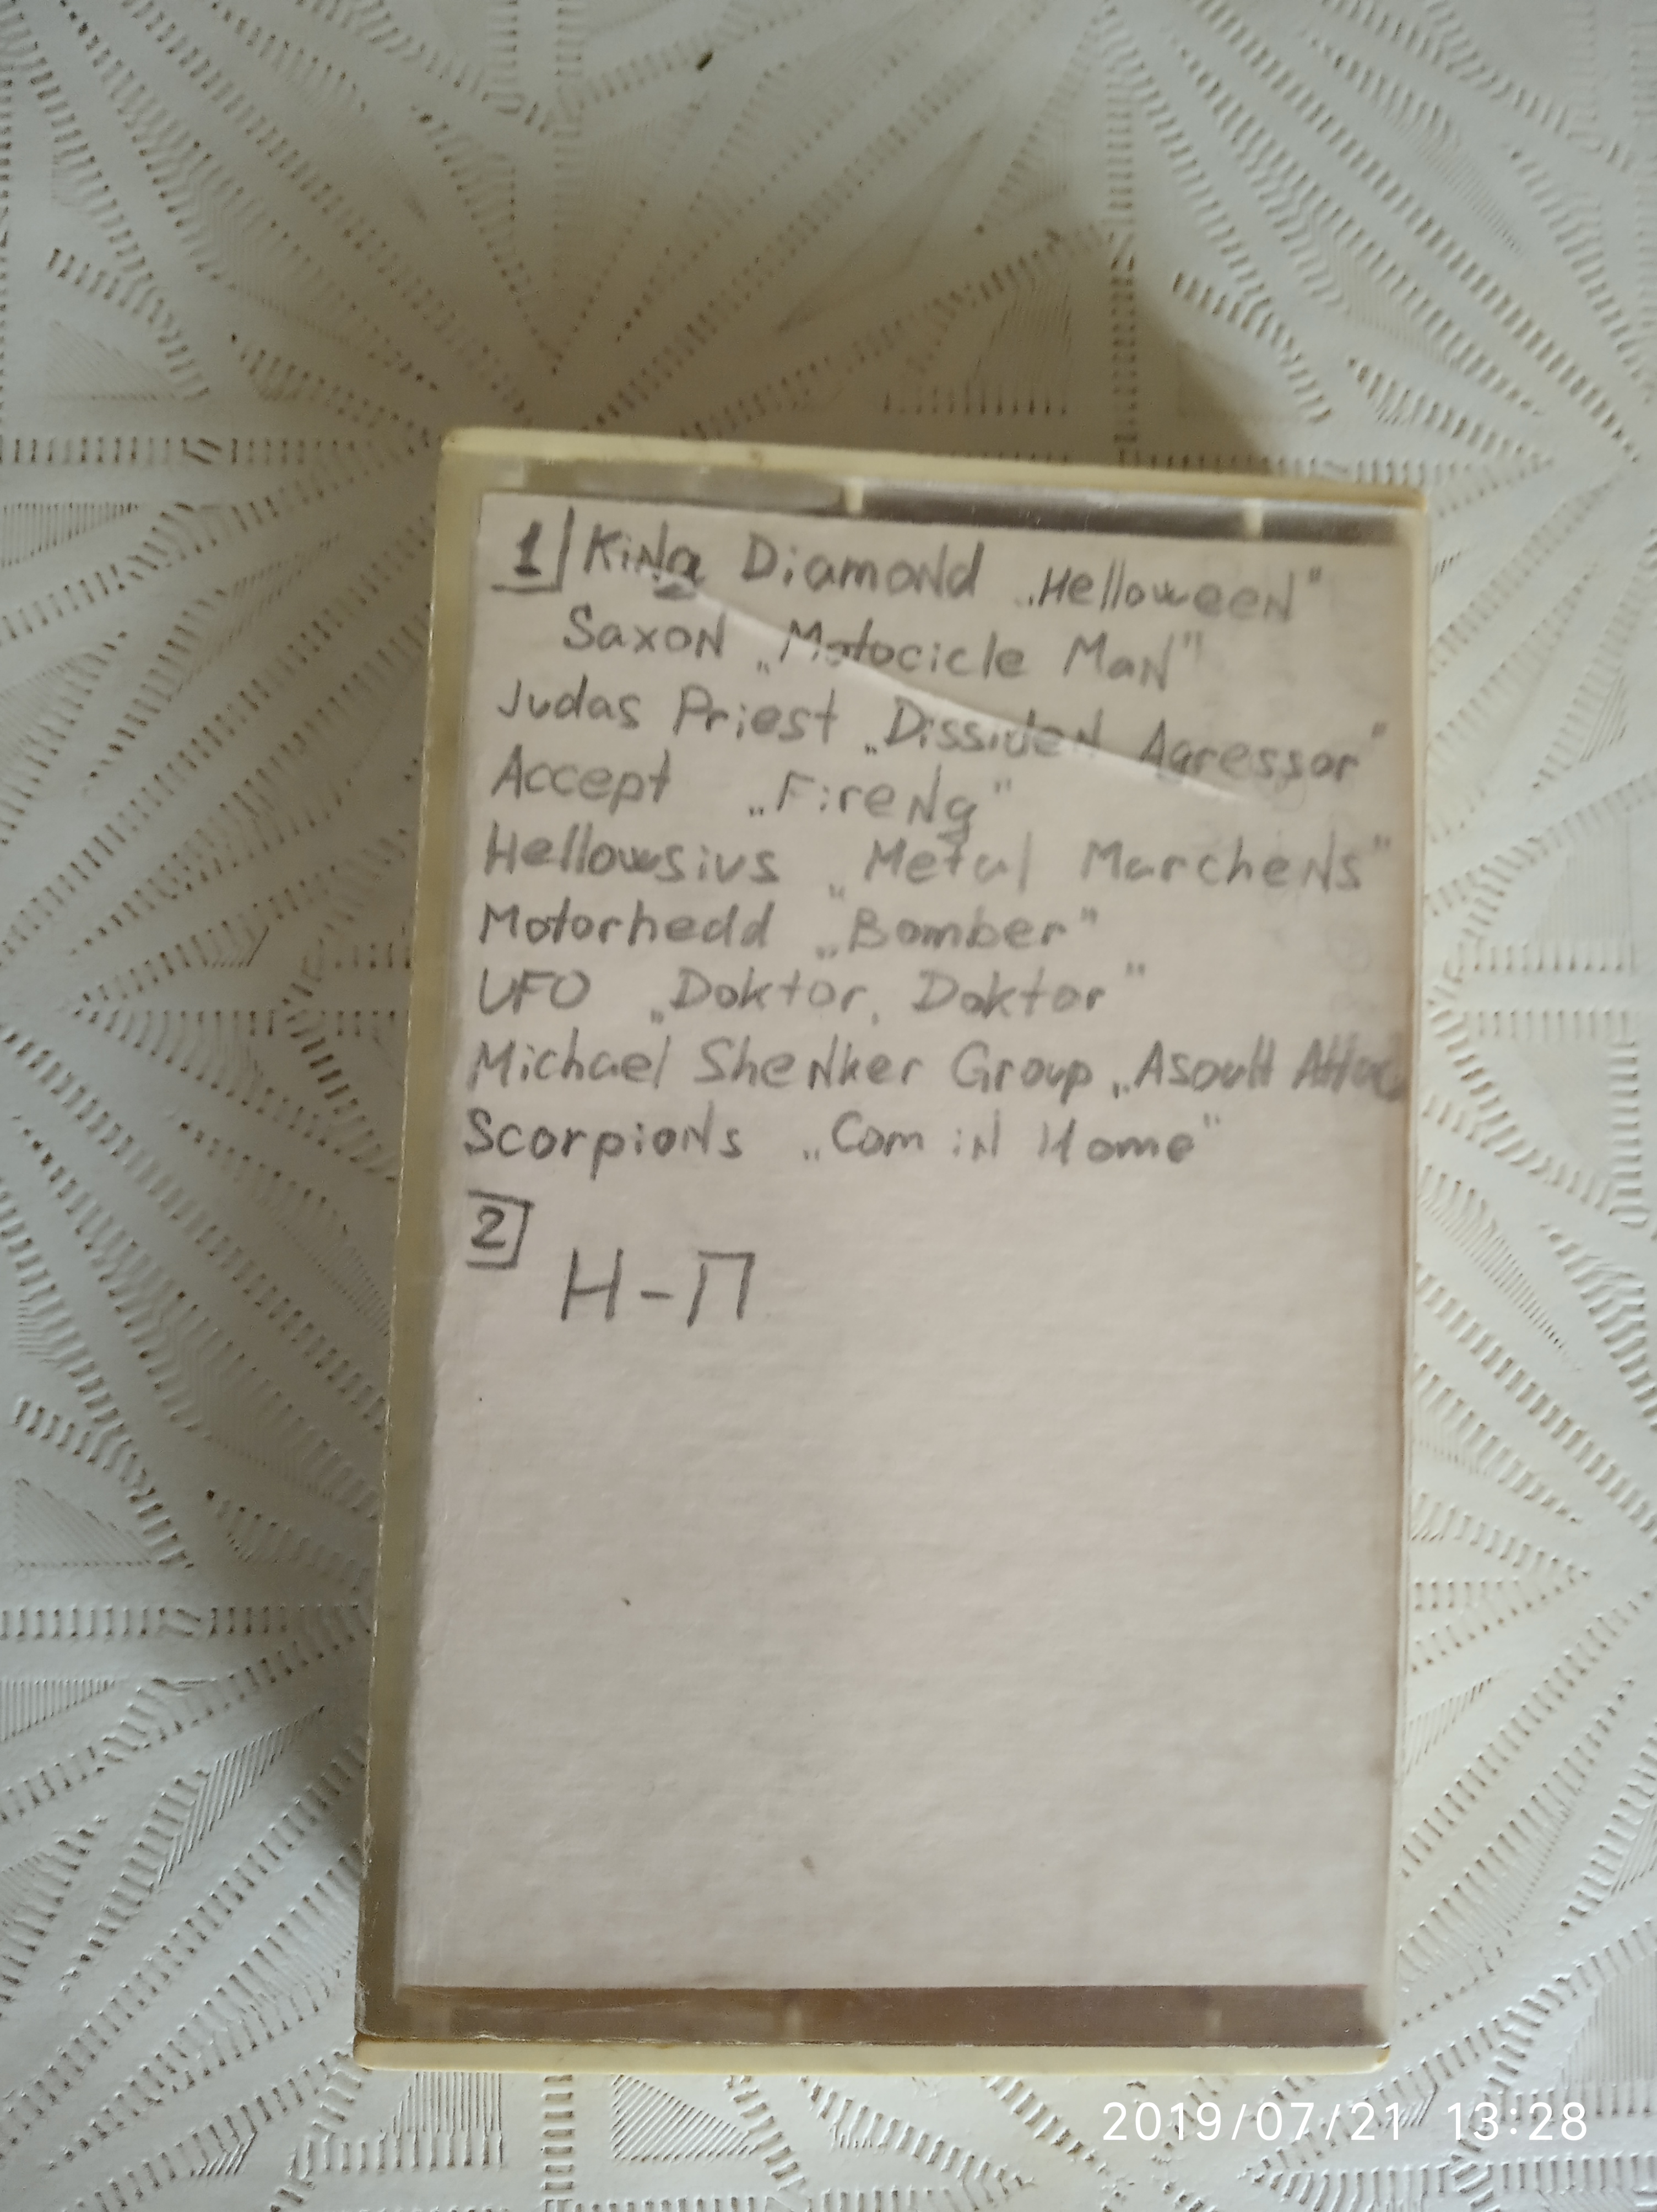 1 King Diamond „Helloween"
Saxon „Motocicle Man"
Judas Priest „Dissiden Agressor"
Accept „Fireng"
Hellowsius „Metal Marchens"
Motorhedd „Bomber"
UFO „Doktor, Doktor"
Michael Shenker Group „Asoult Attac
Scorpions „Com in Home"
2
Н-П
2019/07/21 13:28